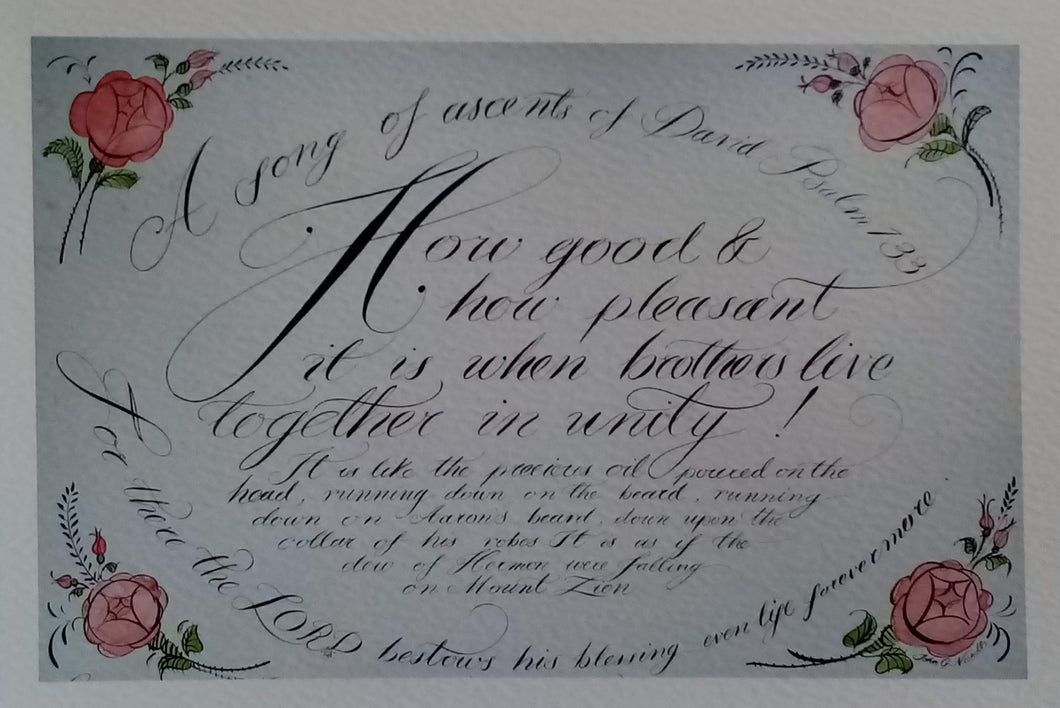 A song of ascents of David Psalm 133
How good &
how pleasant
it is when brothers live
together in unity!
It is like the precious oil poured on the
head, running down on the beard, running
down on Aaron's beard, down upon the
collar of his robes It is as if the
dew of Hermon were falling
on Mount Zion
For there the LORD bestows his blessing even life forevermore.